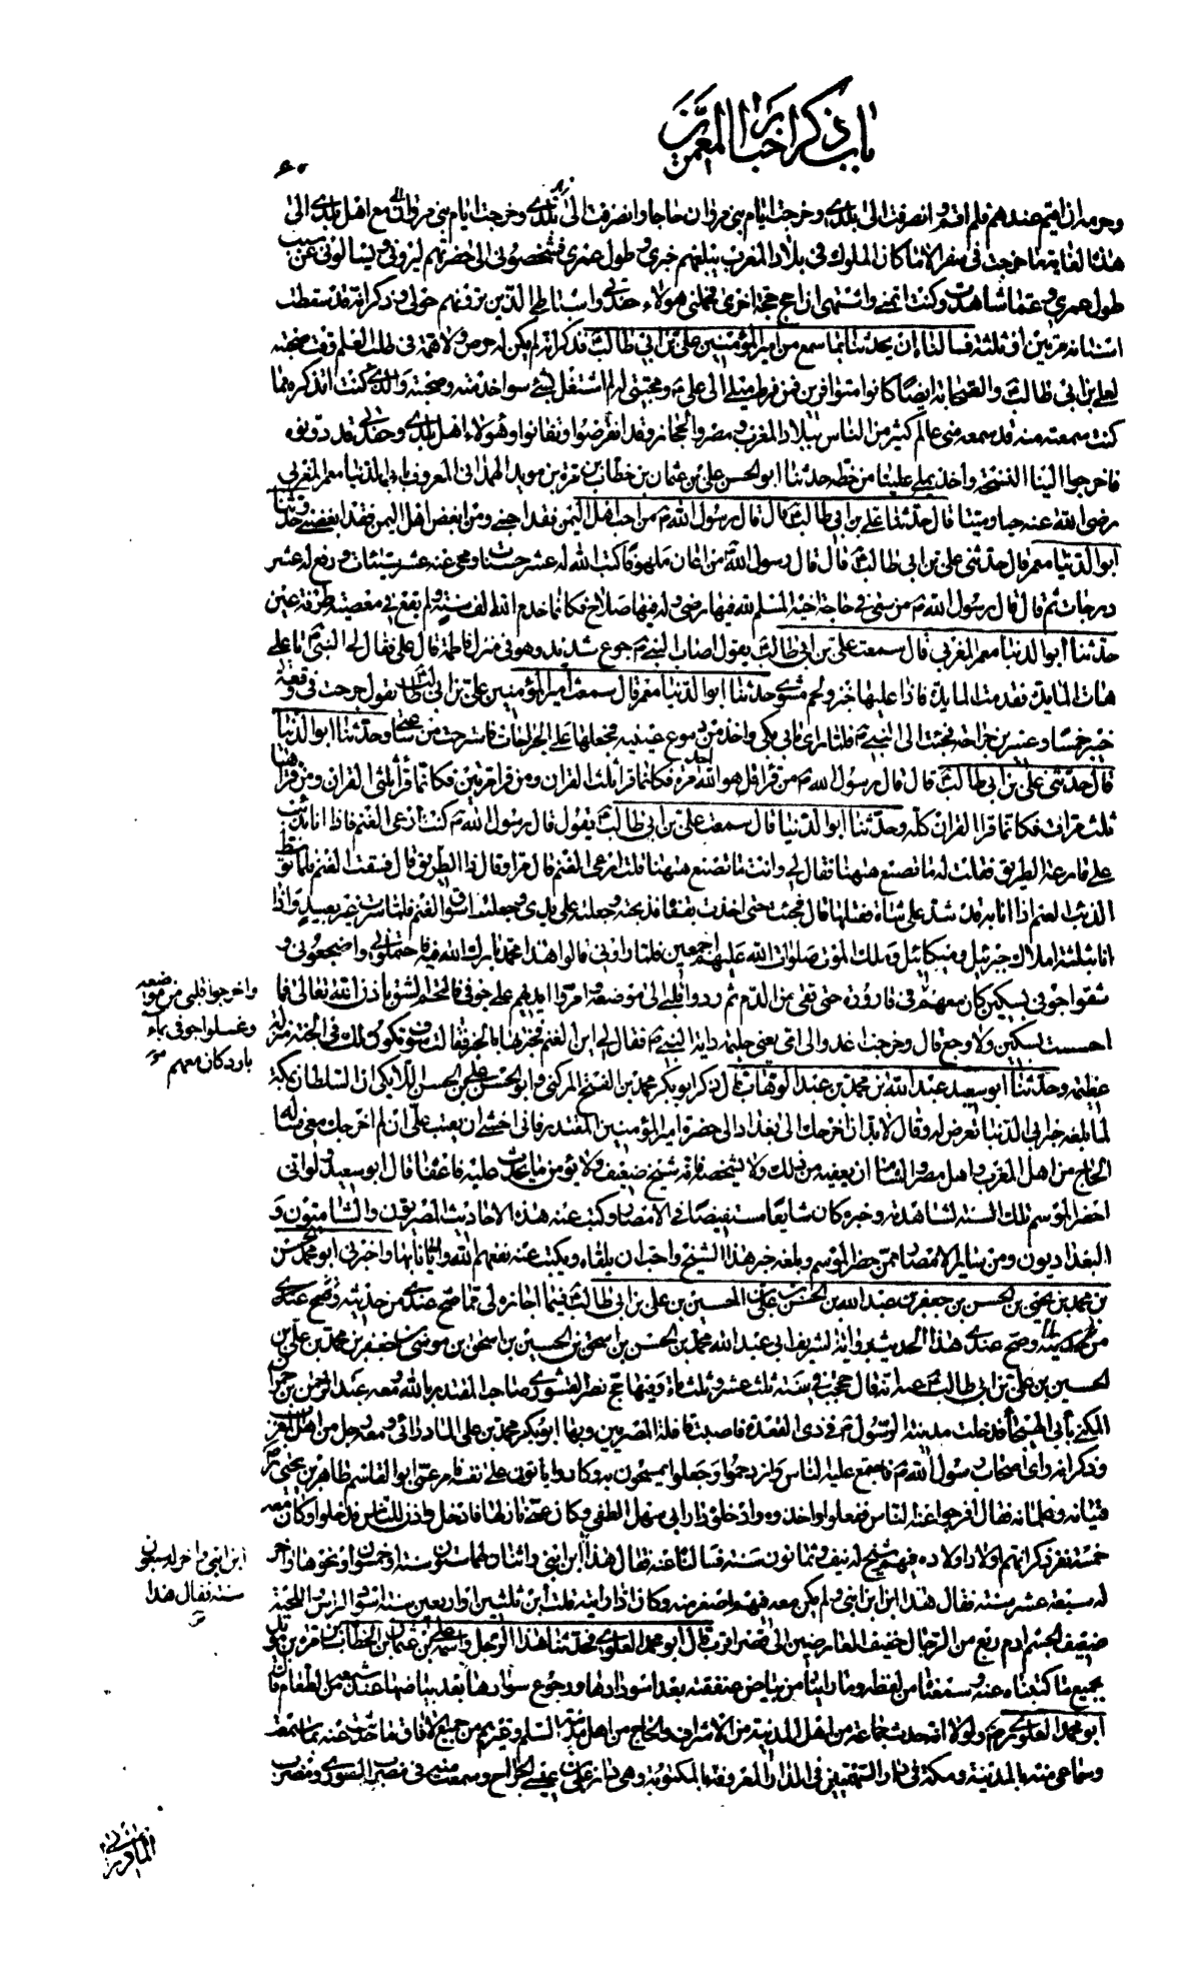 باب ذكر اخبار المعمرين
وحرمه ان اقيم عندهم فلم اقم وانصرفت الى بلدى وخرجت ايام بنى مروان حاجا وانصرفت الى بلدى وخرجت ايام بنى مروان مع اهل بلدى الى
هذه الغاية ما خرجت فى سفر الا ما كان الملوك فى بلاد المغرب يبلغهم خبرى وطول عمرى فيشخصونى الى حضرتهم ليرونى ويسألونى عن سبب
طول عمرى وعما شاهدت وكنت اتمنى واشتهى ان احج حجة اخرى فحملنى هولاء حفدتى واسباطى الذين ترونهم حولى وذكر انه قد سقطت
اسنانه مرتين او ثلثة فسالناه ان يحدثنا بما سمع من امير المؤمنين على بن ابى طالب فذكر انه لم يكن له حرص ولا همة فى طلب العلم وقت صحبته
لعلى بن ابى طالب والصحابة ايضا كانوا متوافرين فمن فرط ميلى الى على ومحبتى له لم اشتغل بشئ سوا خدمته وصحبته والذى كنت اتذكره مما
كنت سمعته منه قد سمعه منى عالم كثير من الناس ببلاد المغرب ومصر والحجاز وقد انقرضوا وتفانوا وهولاء اهل بلدى وحفدتى قد دونوه
فاخرجوا الينا النسخة واخذ يملى علينا من خطه حدثنا ابو الحسن على بن عثمان بن خطاب بن مرة بن مويد الهمدانى المعروف بابى الدنيا معمر المغربى
رضى الله عنه حيا وميتا قال حدثنا على بن ابى طالب قال قال رسول الله من احب اهل اليمن فقد احبنى ومن ابغض اهل اليمن فقد ابغضنى وحدثنا
ابو الدنيا معمر قال حدثنى على بن ابى طالب قال قال رسول الله من اغان ملهوفا كتب الله له عشر حسنات ومحى عنه عشر سيئات ورفع له عشر
درجات ثم قال قال رسول الله من سعى فى حاجة اخيه المسلم لله فيها رضى وله فيها صلاح فكانما خدم الله الف سنة ولم يقع فى معصيته طرفة عين
حدثنا ابو الدنيا معمر المغربى قال سمعت على بن ابى طالب يقول اصاب النبى جوع شديد وهو فى منزل فاطمة قال على فقال لى النبى يا على
هات المايدة فقدمت المايدة فاذا عليها خبز ولحم مشوى حدثنا ابو الدنيا معمر قال سمعت امير المؤمنين على بن ابى طالب يقول جرحت فى وقعة
خيبر خمسا وعشرين جراحة فجئت الى النبى فلما راى ما بى بكى واخذ من دموع عينيه فجعلها على الجراحات فاسترحت من ساعتى وحدثنا ابو الدنيا
قال حدثنى على بن ابى طالب قال قال رسول الله من قرأ قل هو الله احد مرة فكانما قرا ثلث القران ومن قراها مرتين فكانما قرأ ثلثى القران ومن قراها
ثلث مرات فكانما قرا القران كله وحدثنا ابو الدنيا قال سمعت على بن ابى طالب يقول قال رسول الله كنت ارعى الغنم فاذا انا بذئب
على قارعة الطريق فقلت له ما تصنع هيهنا فقال لى وانت ما تصنع هيهنا قلت ارعى الغنم قال مر او قال ذا الطريق قال فسقت الغنم فلما توسط
الذئب الغنم اذا انا به قد شد على شاة فقتلها قال فجئت حتى اخذت بقفاه فذبحته وجعلته على يدى وجعلت اسوق الغنم فلما سرت غير بعيد واذا
انا بثلثة املاك جبرئيل وميكائيل وملك الموت صلوات الله عليهم اجمعين فلما راونى قالوا هذا محمد بارك الله فيه فاحتملونى واضجعونى و
شقوا جوفى بسكين كان معهم واخرجوا قلبى من موضعه وغسلوا جوفى بماء بارد كان معهم فى قارورة حتى نقى من الدم ثم ردوا قلبى الى موضعه وامروا ايديهم على جوفى فالتحم الشق باذن الله تعالى فما
احسست بسكين ولا وجع قال وخرجت اغدو الى امى يعنى حليمة داية النبى فقال لى اين الغنم فخبرتها بالخبر فقالت سوف تكون لك فى الجنة منزلة
عظيمة وحدثنا ابو سعيد عبد الله بن محمد بن عبد الوهاب قال ذكر ابو بكر محمد بن الفتح المركنى وابو الحسن على بن الحسن اللائكى ان السلطان بمكة
لما بلغه خبر ابى الدنيا تعرض له وقال لابد ان اخرجك الى بغداد الى حضرة امير المؤمنين المقتدر فانى اخشى ان يعتب على ان لم اخرجك معى فساله
الحاج من اهل المغرب واهل مصر والشام ان يعفيه من ذلك ولا يشخصه فانه شيخ ضعيف ولا يؤمن ما يحدث عليه فاعفاه قال ابو سعيد ولو انى
احضر الموسم تلك السنة لشاهدته وخبره كان شايعا مستفيضا فى الامصار وكتب عنه هذه الاحاديث المصريون والشاميون و
البغداديون ومن ساير الامصار ممن حضر الموسم وبلغه خبر هذا الشيخ واحب ان يلقاه ويكتب عنه نفعهم الله وايانا بها واخبرنى ابو محمد الحسن
بن محمد بن يحيى بن الحسن بن جعفر بن عبد الله بن الحسن بن على بن الحسين بن على بن ابى طالب فيما اجازه لى مما صح عندى من حديثه وصح عندى
هذا الحديث برواية الشريف ابى عبد الله محمد بن الحسن بن اسحق بن الحسين بن اسحق بن موسى بن جعفر بن محمد بن على بن
الحسين بن على بن ابى طالب عنه انه قال حججت فى سنة ثلث عشر وثلث ماة وفيها حج نصر القشورى صاحب المقتدر بالله ومعه عبد الرحمن بن حمران
المكنى بابى الهيجاء فدخلت مدينة الرسول فى ذى القعدة فاصبت قافلة المصريين وبها ابو بكر محمد بن على المادرائى ومعه رجل من اهل المغرب
وذكر انه راى اصحاب رسول الله فاجتمع عليه الناس وازدحموا وجعلوا يمسحون به وكادوا ياتون على نفسه فامر عمى ابو القاسم طاهر بن يحيى
فتيانه وغلمانه فقال افرجوا عنه الناس ففعلوا واخذوه وادخلوه دار ابى سهل الطفى وكان عمى نازلها فادخل واذن للناس فدخلوا وكان معه
خمسة نفر ذكر انهم اولاد اولاده فيهم شيخ له نيف وثمانون سنة فسالناه عنه فقال هذا ابن ابنى واثنان لهما ستون سنة او خمسون او نحوها واخر
له سبعة عشر سنة فقال هذا ابن ابن ابنى ولم يكن معه فيهم اصغر منه وكان اذا رايته قلت ابن ثلثين او اربعين سنة اسود الراس واللحية
ضعيف الجسم ادم ربع من الرجال خفيف العارضين الى قصر اقرب قال ابو محمد العلوى فحدثنا هذا الرجل واسمه على بن عثمان بن الخطاب بن مرة بن مويد
بجميع ما كتبناه عنه وسمعنا من لفظه وما رايناه من بياض عنفقته بعد اسودادها ورجوع سوادها بعد بياضها عند شبعه من الطعام قال
ابو محمد العلوى ولولا انه حدث جماعة من اهل المدينة من الاشراف والحاج من اهل مدينة السلم وغيرهم من جميع الافاق ما حدثت عنه بما سمعت
وسماعى منه بالمدينة ومكة فى دار السهميين فى الدار المعروفة بالمكتوبة وهى دار على بن عيسى الجراح وسمعت منه فى مضرب القشورى ومضرب
واخرجوا قلبى من موضعه
وغسلوا جوفى بماء
بارد كان معهم
ابن ابنى واخر له سبعون
سنة فقال هذا
المادرائى